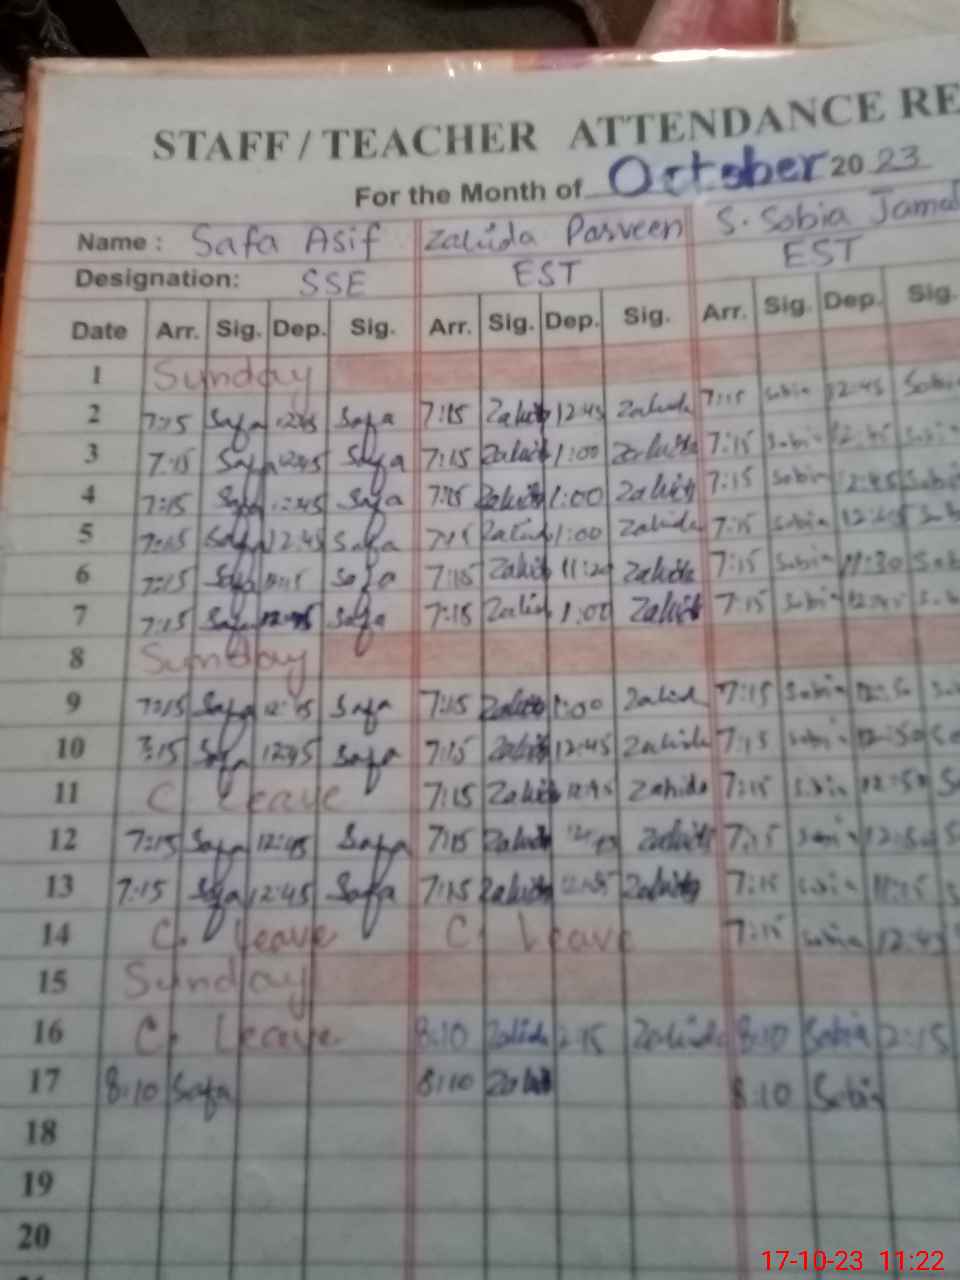 STAFF / TEACHER ATTENDANCE RE
For the Month of October 2023
Name : Safa Asif Zahida Parveen S. Sobia Jamal
Designation: SSE EST EST
Date Arr. Sig. Dep. Sig. Arr. Sig. Dep. Sig. Arr. Sig. Dep. Sig.
1 Sunday
2 7:15 Safa 12:45 Safa 7:15 Zahida 12:45 Zahida 7:15 Sobia 12:45 Sobia
3 7:15 Safa 12:45 Safa 7:15 Zahida 1:00 Zahida 7:15 Sobia 12:45 Sobia
4 7:15 Safa 12:45 Safa 7:15 Zahida 1:00 Zahida 7:15 Sobia 12:45 Sobia
5 7:15 Safa 12:45 Safa 7:15 Zahida 1:00 Zahida 7:15 Sobia 12:45 Sob
6 7:15 Safa Safa 7:15 Zahida 11:20 Zahida 7:15 Sobia 11:30 Sob
7 7:15 Safa 12:45 Safa 7:15 Zahida 1:00 Zahida 7:15 Sobia 12:45 Sob
8 Sunday
9 7:15 Safa 12:45 Safa 7:15 Zahida 1:00 Zahida 7:15 Sobia 12:50 So
10 7:15 Safa 12:45 Safa 7:15 Zahida 12:45 Zahida 7:15 Sobia 12:50 So
11 C. Leave 7:15 Zahida 12:45 Zahida 7:15 Sobia 12:50 S
12 7:15 Safa 12:45 Safa 7:15 Zahida 12:45 Zahida 7:15 Sobia 12:50 S
13 7:15 Safa 12:45 Safa 7:15 Zahida Zahida 7:15 Sobia 11:15 S
14 C. Leave C. Leave 7:15 Sobia 12:45
15 Sunday
16 C. Leave 8:10 Zahida 2:15 Zahida 8:10 Sobia 2:15
17 8:10 Safa 8:10 Zahida 8:10 Sobia
18
19
20
17-10-23 11:22